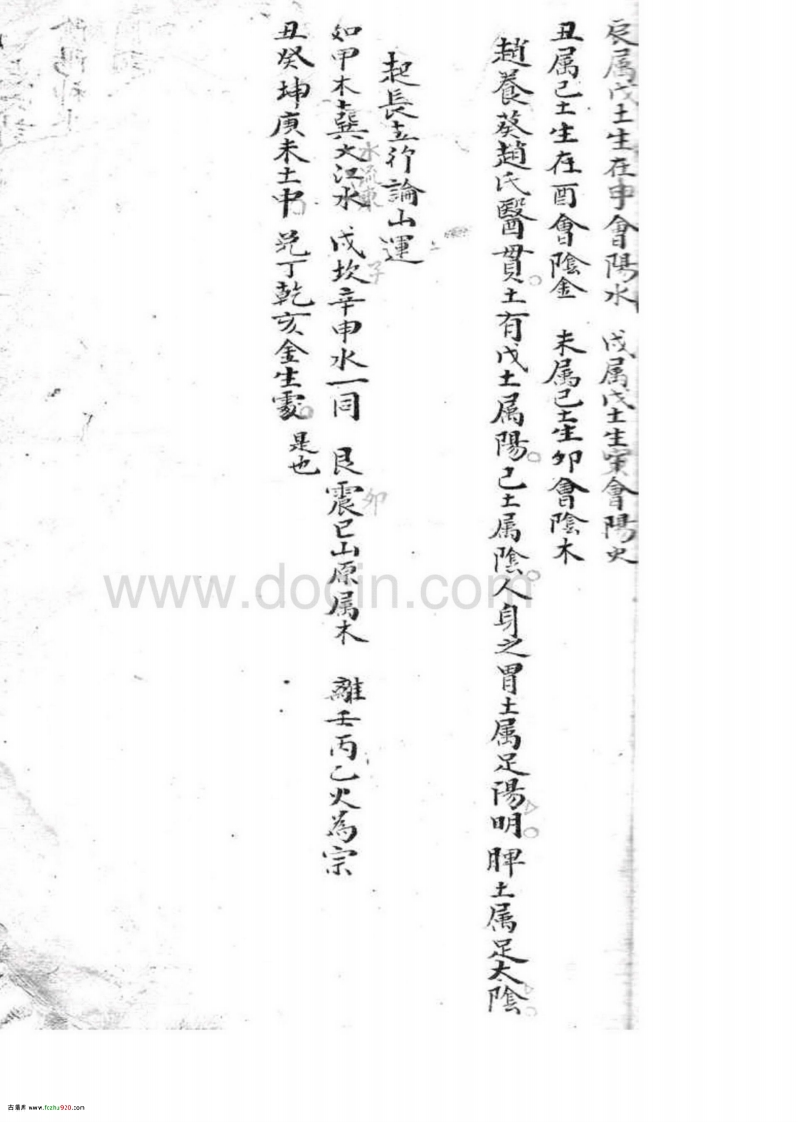 辰属戊土生在申會陽水 戌属戊土生寅會陽火
丑属己土生在酉會陰金 未属己土生卯會陰木
趙養葵趙氏醫貫土有戊土属陽己土属陰人身之胃土属足陽明脾土属足太陰
起長五行論山運
如甲木巽大江水 戌坎辛申水一同 艮震巳山原属木 離壬丙乙火為宗
水流東 子 卯
丑癸坤庚未土中 兑丁乾亥金生處 是也
www.docin.com
www.fczhu920.com